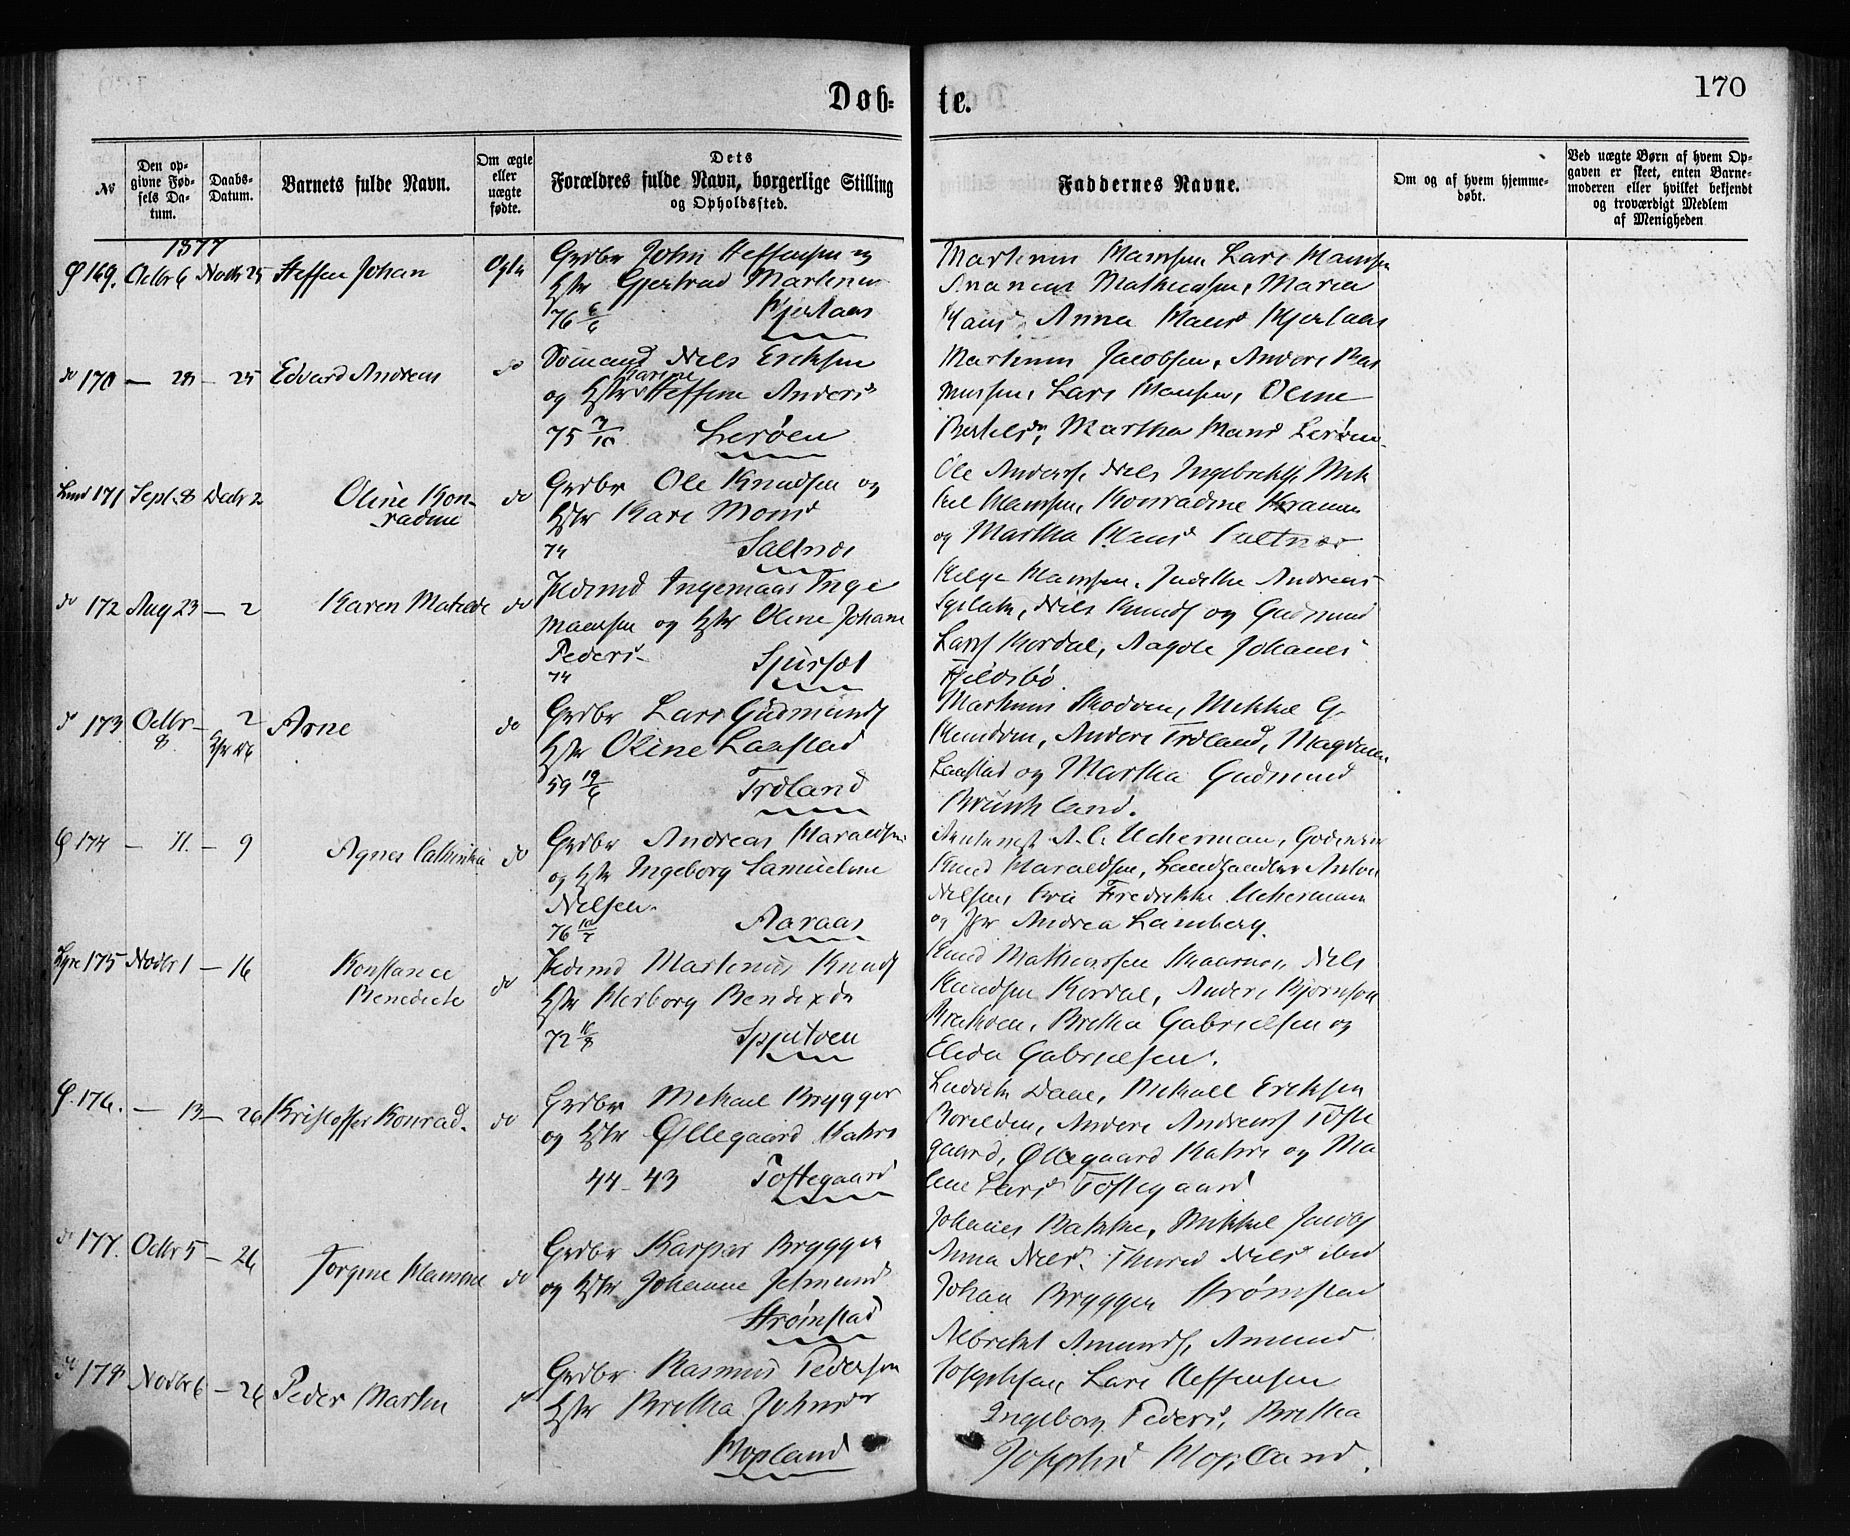 Døb-
te.
170
№
Den op-
givne Fød-
sels Da-
tum.
Daabs-
Datum.
Barnets fulde Navn.
Om ægte
eller
uægte
fødte.
Dets
Forældres fulde Navn, borgerlige Stilling
og Opholdssted.
Faddernes Navne.
Om og af hvem hjemme-
døbt.
Ved uægte Børn af hvem Op-
gaven er skeet, enten Barne-
moderen eller hvilket bekjendt
og troværdigt Medlem
af Menigheden
1877
169. Octbr 6 Novbr 25 Steffen Johan
Grdbr John Steffensen og
Hstr Gjertrud Martenus
76 6/6
Martinus Hanssen Lars Hanssen
Ananias Mathiassen, Maria
Hansd Anna Hansd
do 170 — 28 — 25 Edvard Andreas do
Sømand Niels Eriksen
Karine
og Hstr Steffine Andersd
75 7/10 Lerøen
Martinus Jacobsen, Anders Ras
mussen, Lars Hansen, Oline
Bertelsd, Martha Hansd Lerøen
Lund 171 Sept. 8 Decbr 2 Oline Kon-
radine
do
Grdbr Ole Knudsen og
Hstr Kari Monsd
74 Saltnæs
Ole Anders, Niels Ingebrektss, Mik
kel Hanssen, Konradine Kramer
og Martha Hansd Saltnæs
do 172 Aug 23 — 2 Karen Matilde do
Ingemaar Inge
maarsen og Hstr Oline Johane
Pedersd
74 Sjursæt
Helge Hanssen, Andreas
Niels Knuds og Gudmund
Larss Kordal, Aagote Johannes
Fjeldsbø
do 173 Octbr 8 — 2 Arne do
Grdbr Lars Gudmunds
Hstr Oline Laastad
59 19/6 Troland
Martinus Skodven, Mikkel G.
Anders Troland, Magdalene
Laastad og Martha Gudmund
Brunkland.
174 — 11. — 9 Agnes Cathinka do
Grdbr Andreas Haraldsen
og Hstr Ingeborg Samueline
Nielsen.
76 Aaraas
A. C. Ucherman,
Knud Haraldsen, Landhandler Anton
Nielsen, Fredrikke Uchermann
og Jfr Andrea Landberg.
175 Novbr 1 — 16 Konstance
Benedicte
do
Martinus Knuds
Hstr Herborg Bendixdr
72 Spjutøen
Knud Mathiassen Skaarnæs, Niels
Knudsen Kordal, Anders Bjørnson
Brethe Gabrielsen og
Elida Gabrielsen.
176. — 13 — 26 Kristoffer Konrad. do
Grdbr Mikael Brygger
og Hstr Øllegaard Katr
44 - 43 Toftegaard
Ludvik Daae, Mikael Eriksen
Anders Andreas Tofte
gaard, Øllegaard Katr og Ma
lene Larsd Toftegaard
do 177. Octbr 5 — 26 Jorgine Hansine do
Grdbr Kaspar Bryggen
og Hstr Johanne Jetmund
Strømstad
Johannes Bakke, Mikkel Jacobs
Anna Nielsd. Thured Nielsd ibid
Johan Bryggen Strømstad
178 Novbr 6 — 26 Peder Martin do
Grdbr Rasmus Pedersen
Hstr Brethe Johnsdr
Hopland
Albrekt Amunds, Amund
Josephsen, Lars Steffensen
Ingeborg Pedersd, Brethe
Josephsd Hopland.